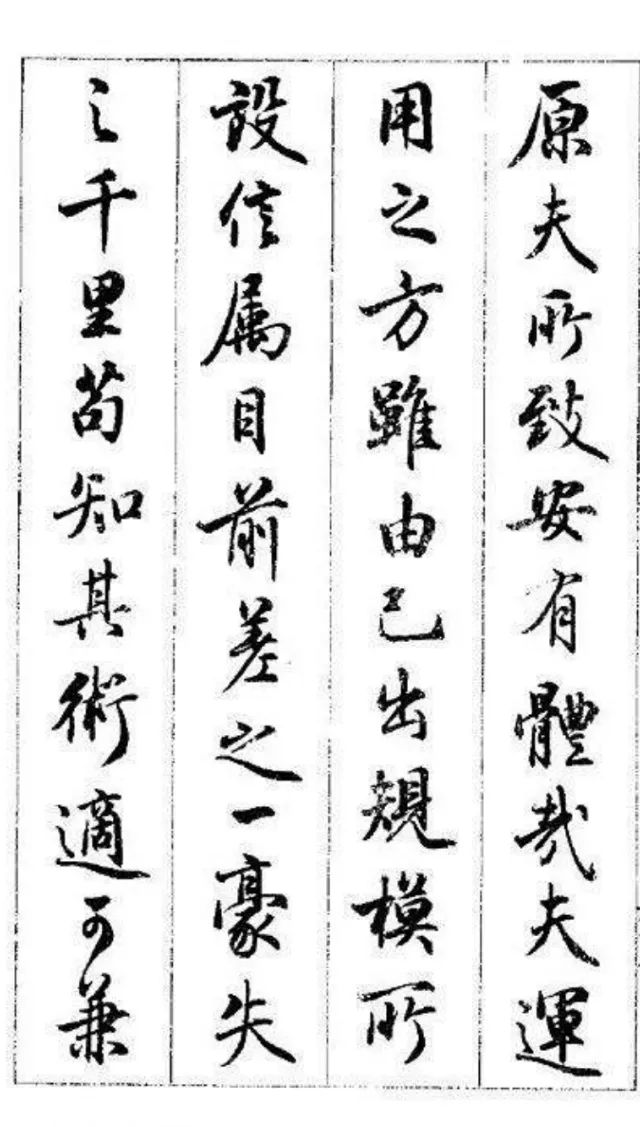 原夫所致安有體哉夫運
用之方雖由己出規模所
設信属目前差之一豪失
之千里苟知其術適可兼